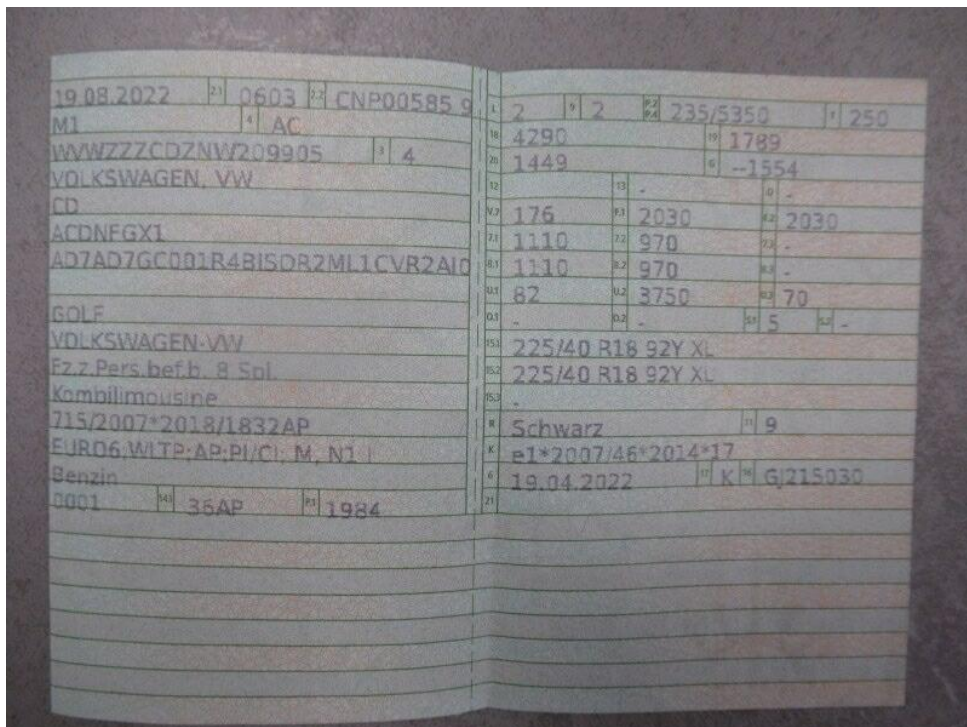 19.08.2022 2.1 0603 2.2 CNP00585 9
M1 4 AC
WVWZZZCDZNW209905 3 4
VOLKSWAGEN, VW
CD
ACDNFGX1
AD7AD7GC001R4BISDR2ML1CVR2AI0
GOLF
VOLKSWAGEN-VW
Fz.z.Pers.bef.b. 8 Spl.
Kombilimousine
715/2007*2018/1832AP
EURO6;WLTP;AP;PI/CI; M, N1 I
Benzin
0001 14.1 36AP P.1 1984
L 2 9 2 P.2 P.4 235/5350 T 250
18 4290 19 1789
20 1449 G --1554
12 13 - Q -
V.7 176 F.1 2030 F.2 2030
7.1 1110 7.2 970 7.3 -
8.1 1110 8.2 970 8.3 -
U.1 82 U.2 3750 U.3 70
O.1 - O.2 - S.1 5 S.2 -
15.1 225/40 R18 92Y XL
15.2 225/40 R18 92Y XL
15.3 -
R Schwarz 11 9
K e1*2007/46*2014*17
6 19.04.2022 17 K 16 GJ215030
21